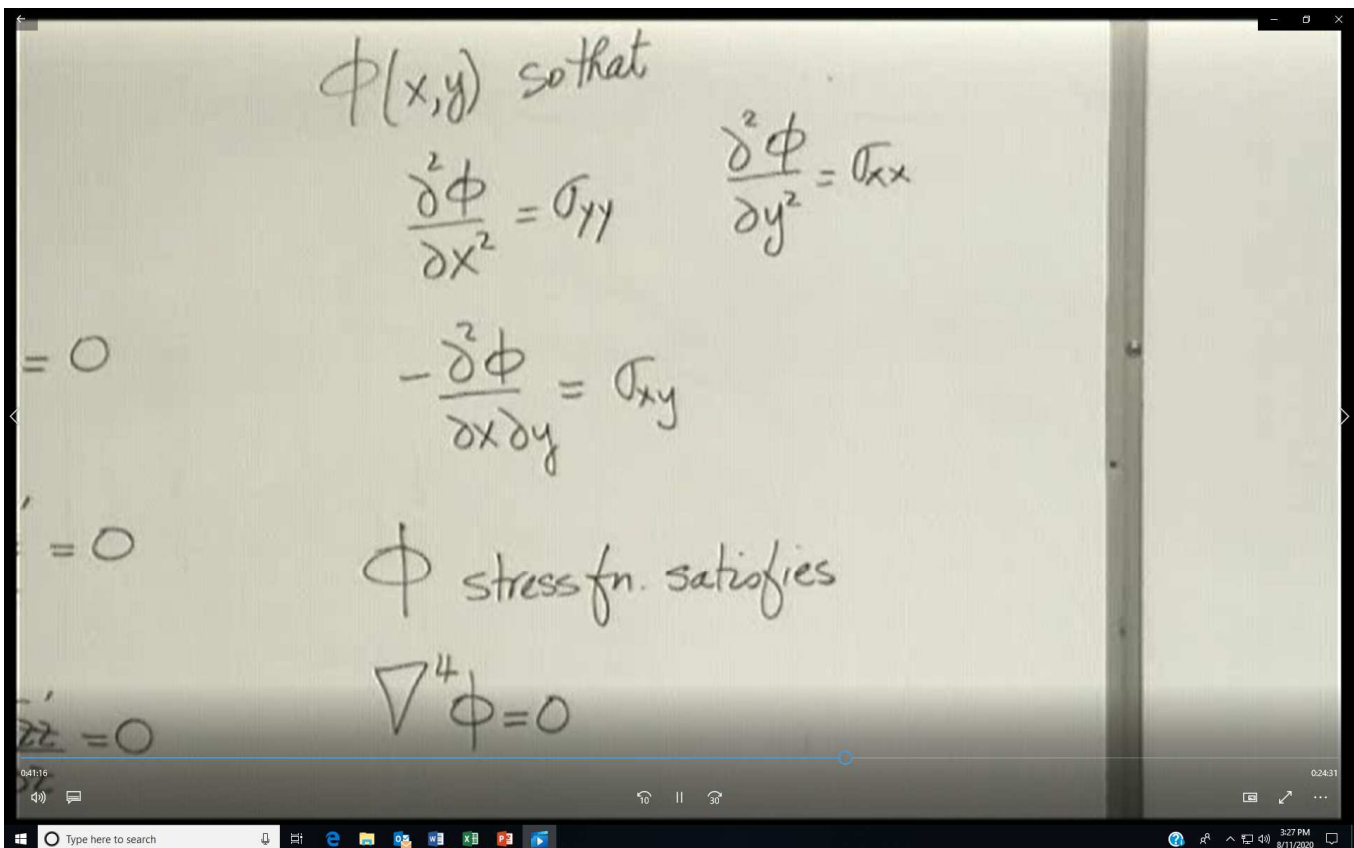 ϕ(x,y) so that
∂²ϕ/∂x² = σyy
∂²ϕ/∂y² = σxx
= 0
-∂²ϕ/∂x∂y = σxy
= 0
ϕ stress fn. satisfies
∇⁴ϕ=0
zz' =0
0:41:16
0:24:31
10
30
Type here to search
3:27 PM
8/11/2020